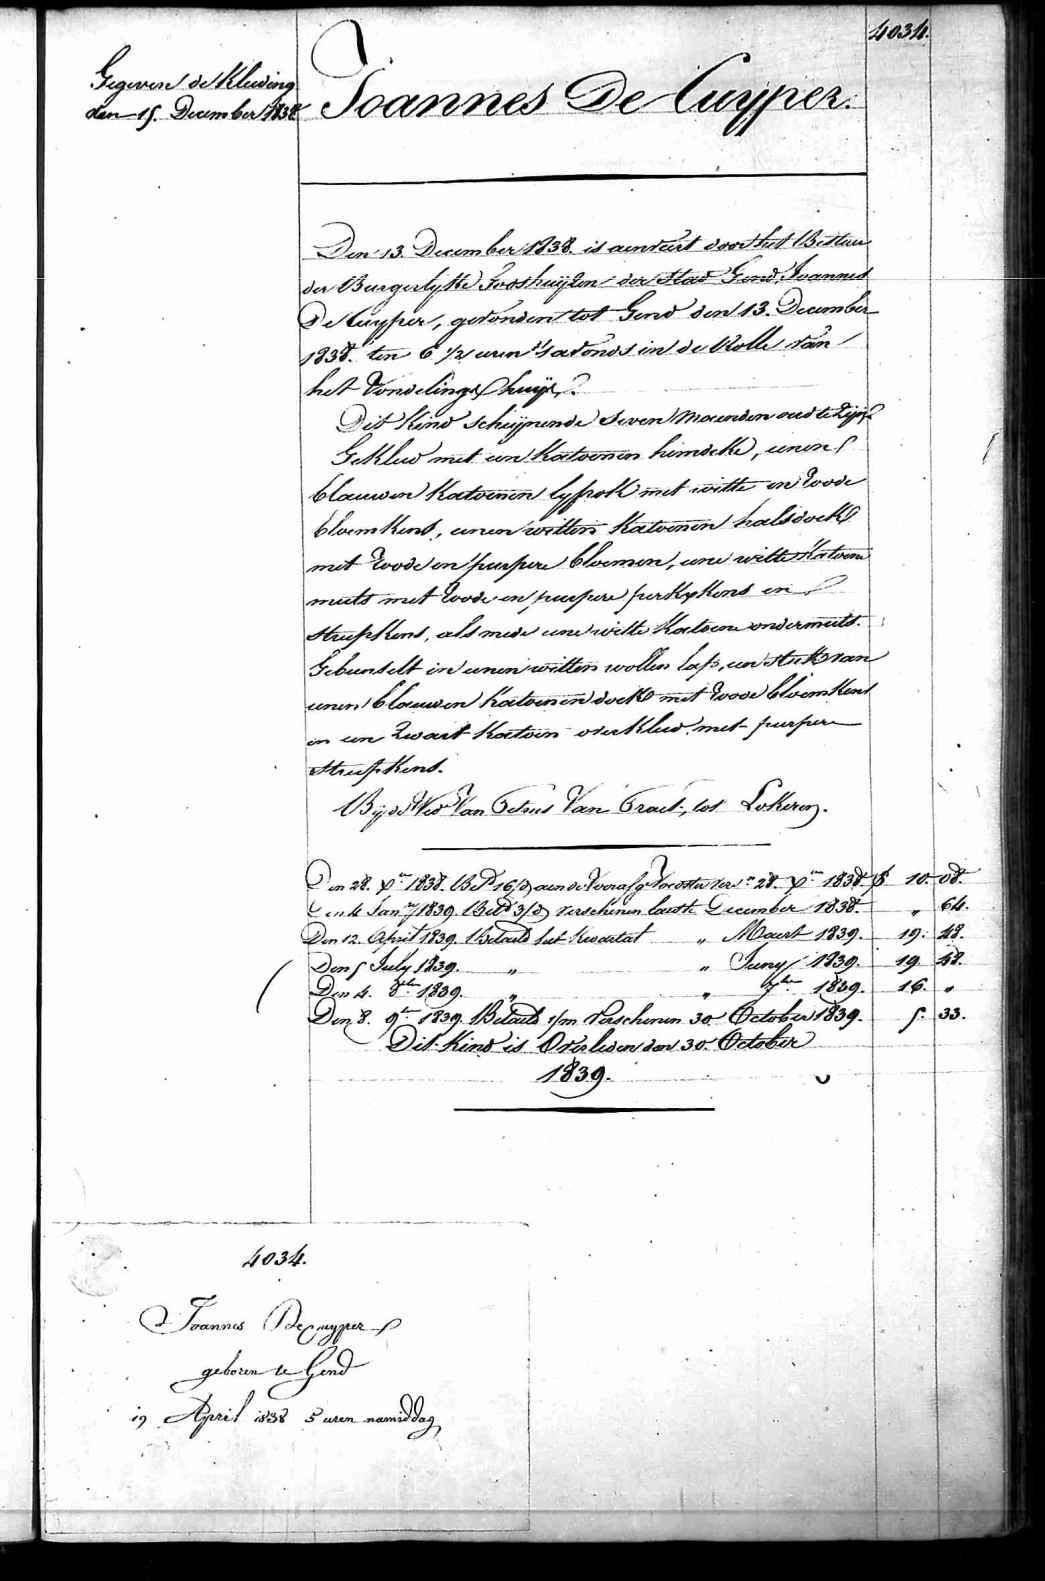 4034.
Gegeven de Kleeding
den 15. December 1838
Joannes De Cuyper.
Den 13. December 1838. is aenveirt door het Bestuer
der Burgerlyke Godshuyzen der Stad Gend, Joannes
De Cuyper, gevonden tot Gend den 13. December
1838. ten 6 1/2 uren 's avonds in de Rolle van
het Vondelingshuys.
Dit Kind scheynende seven Maenden oud te zyn
Gekleed met een Katoenen hemdeke, eenen
blauwen Katoenen lyfrok met witte en roode
bloemkens, eenen witten Katoenen halsdoek
met roode en purpere bloemen, eene witte Katoene
muts met roode en purpere perkxkens en
streepkens, als mede eene witte Katoene ondermuts.
Gebunselt in eenen witten wollen lap, een stuk van
eenen blauwen Katoenen doek met roode bloemkens
en een zwart Katoen overkleed met purpere
streepkens.
By de Wed. Van Petrus Van Prael, tot Lokeren.
Den 28. Xber 1838. Bet. 16/d aen de Voorafge Vrooster ver. 28. Xber 1838 10. 08.
Den 4 Jany 1839. Bet. 3/d verschenen laeste December 1838. " 64.
Den 12. April 1839. Betaeld het Kwartael " Maert 1839. 19. 48.
Den 5 July 1839. " " Juny 1839. 19 48.
Den 4. 8ber 1839. " " 7ber 1839. 16. "
Den 8. 9ber 1839. Betaeld 1/m Verschenen 30 October 1839. 5. 33.
Dit Kind is Overleden den 30. October
1839.
4034.
Joannes De Cuyper
geboren te Gend
19 April 1838 5 uren namiddag